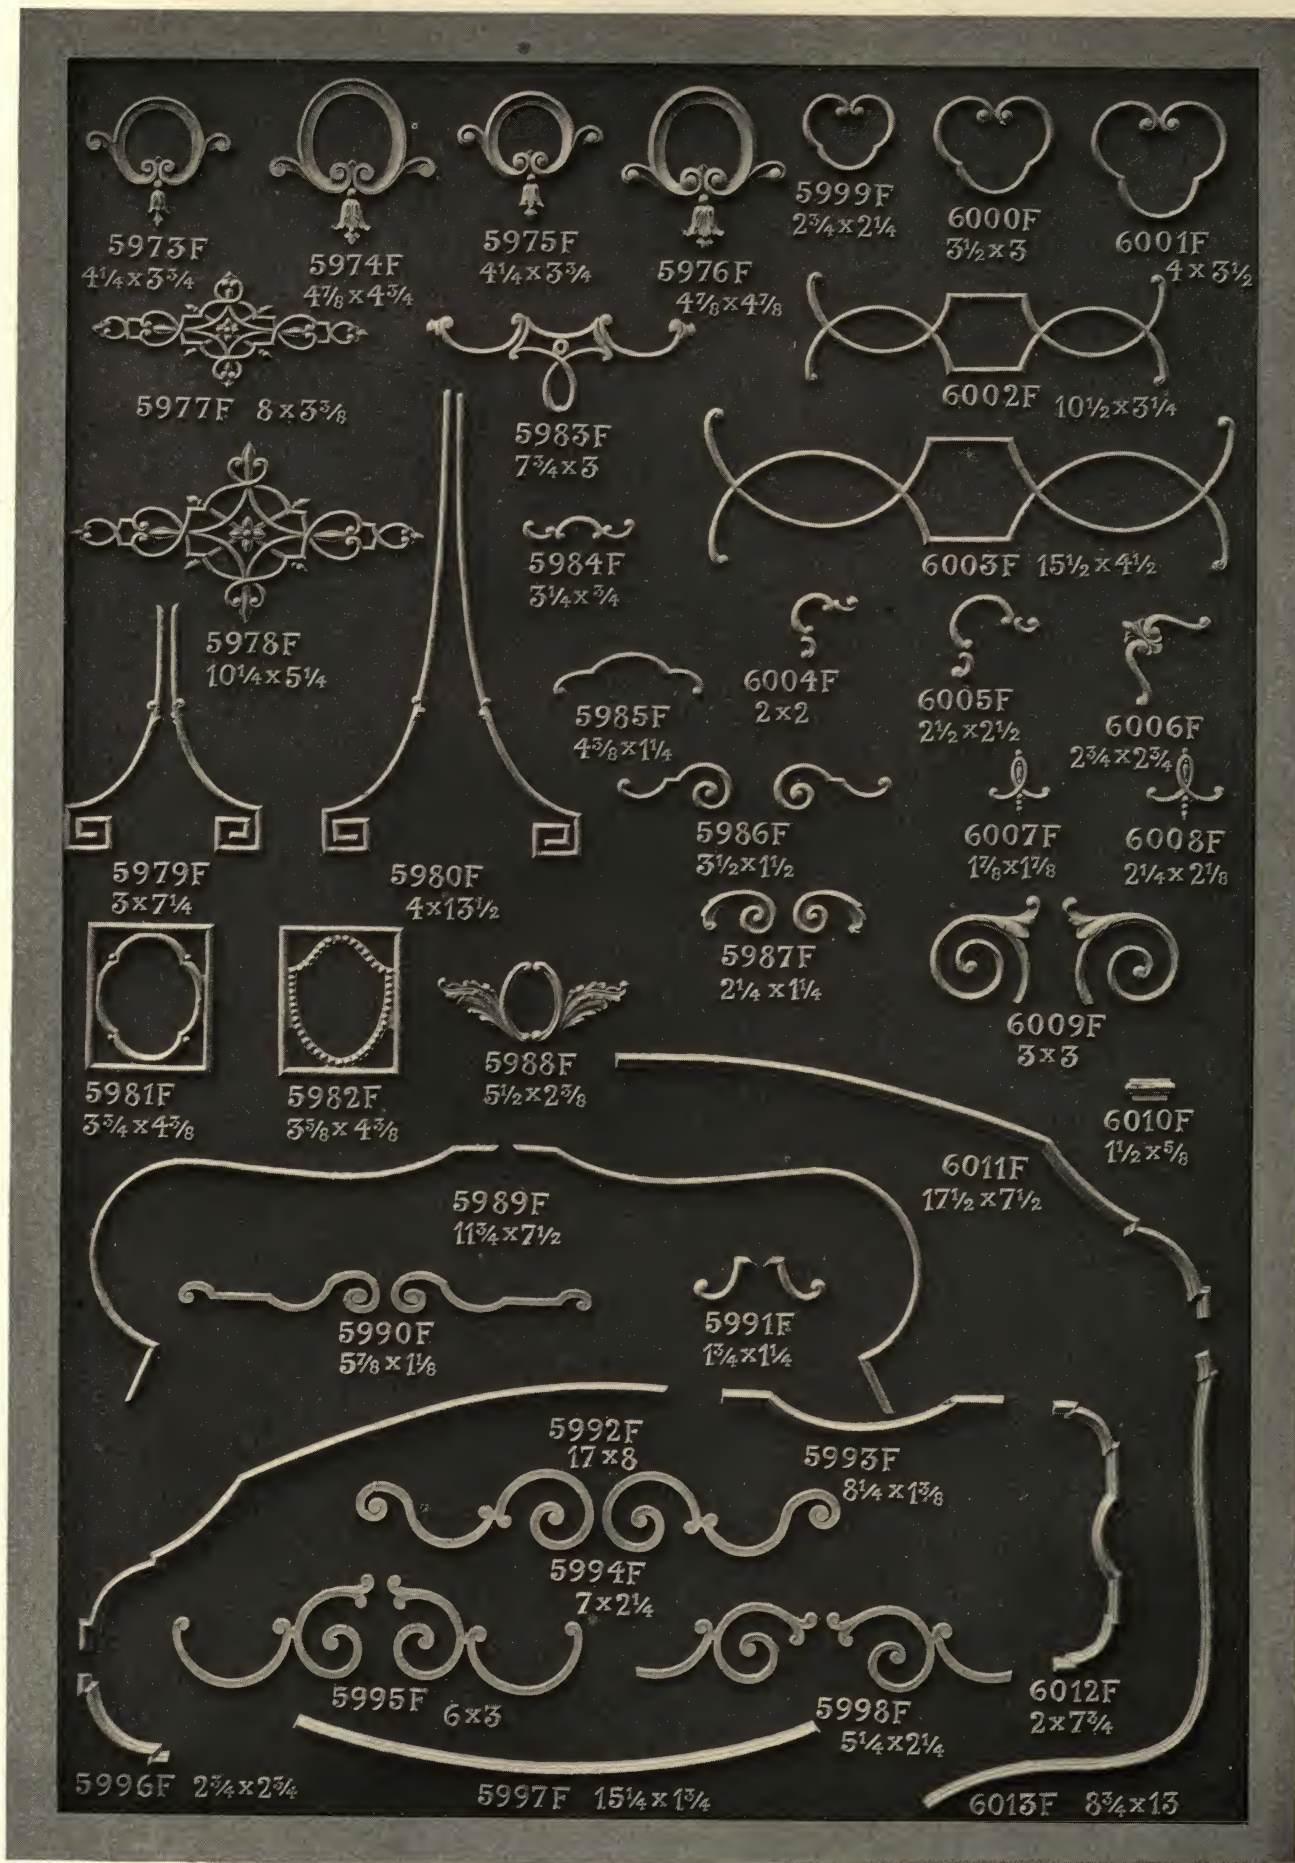 5973F
4¼×3¾
5974F
4⅞×4¾
5975F
4¼×3¾
5976F
4⅞×4⅞
5999F
2¾×2¼
6000F
3½×3
6001F
4×3½
5977F 8×3⅜
5983F
7¾×3
6002F 10½×3¼
5978F
10¼×5¼
5984F
3¼×¾
6003F 15½×4½
5985F
4⅜×1¼
6004F
2×2
6005F
2½×2½
6006F
2¾×2¾
5979F
3×7¼
5980F
4×13½
5986F
3½×1½
6007F
1⅞×1⅞
6008F
2¼×2⅛
5987F
2¼×1¼
6009F
3×3
5981F
3¾×4⅜
5982F
3⅝×4⅜
5988F
5½×2⅜
6010F
1½×⅝
5989F
11¾×7½
6011F
17½×7½
5990F
5⅞×1⅛
5991F
1¾×1¼
5992F
17×8
5993F
8¼×1⅜
5994F
7×2¼
5995F 6×3
5998F
5¼×2¼
6012F
2×7¾
5996F 2¾×2¾
5997F 15¼×1¾
6013F 8¾×13